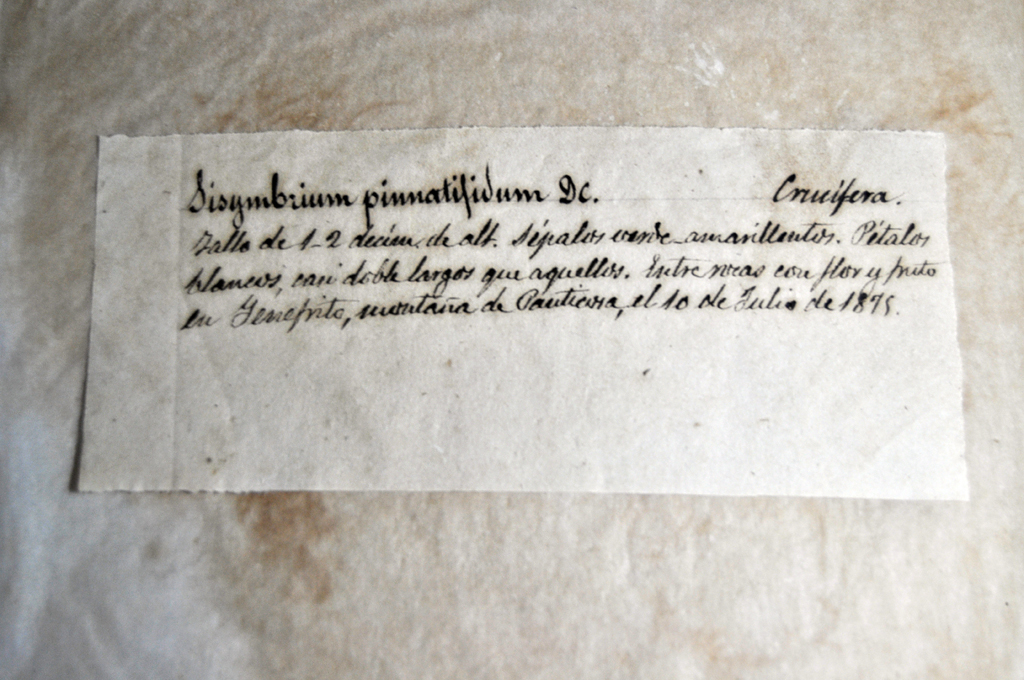 Sisymbrium pinnatifidum DC. Crucífera.
Tallo de 1-2 decím. de alt. Sépalos verde-amarillentos. Pétalos
blancos, casi doble largos que aquellos. Entre rocas con flor y fruto
en Yenefrito, montaña de Panticosa, el 10 de Julio de 1875.